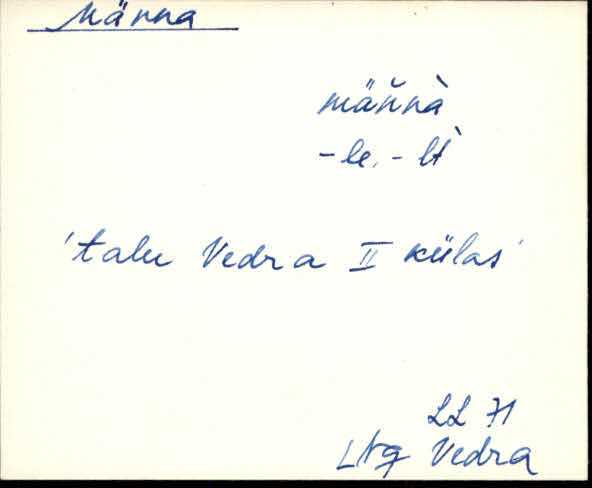 Männa
männà
-le, -lt̀
'talu Vedra II külas'
LL 71
Vedra